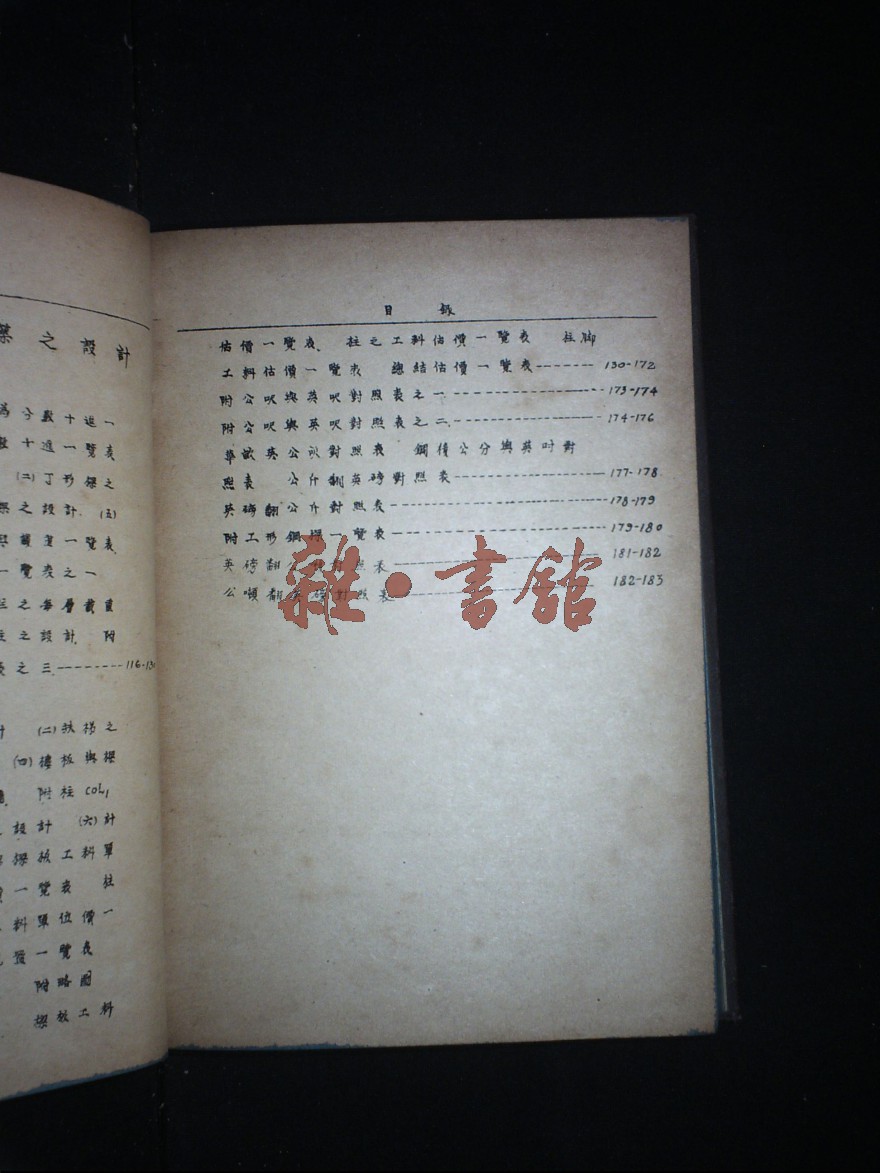 之設計
分數十進一
數十進一覽表
(二)丁形樑之
樑之設計 (五)
載重一覽表
一覽表之一
三之每層載重
柱之設計 附
表之三 116-130
計 (二)扶梯之
(四)樓板與樑
附柱COL1
設計 (六)計
樑板工料單
一覽表 柱
料單位價一
一覽表
附略圖
樑板工料
目錄
估價一覽表 柱之工料估價一覽表 柱脚
工料估價一覽表 總結估價一覽表 130-172
附公呎與英呎對照表之一 173-174
附公呎與英呎對照表之二 174-176
華畝英公畝對照表 鋼條公分與英吋對
照表 公斤翻英磅對照表 177-178
英磅翻公斤對照表 178-179
附工形鋼樑一覽表 179-180
英磅翻公噸對照表 181-182
公噸翻英磅對照表 182-183
雜·書館